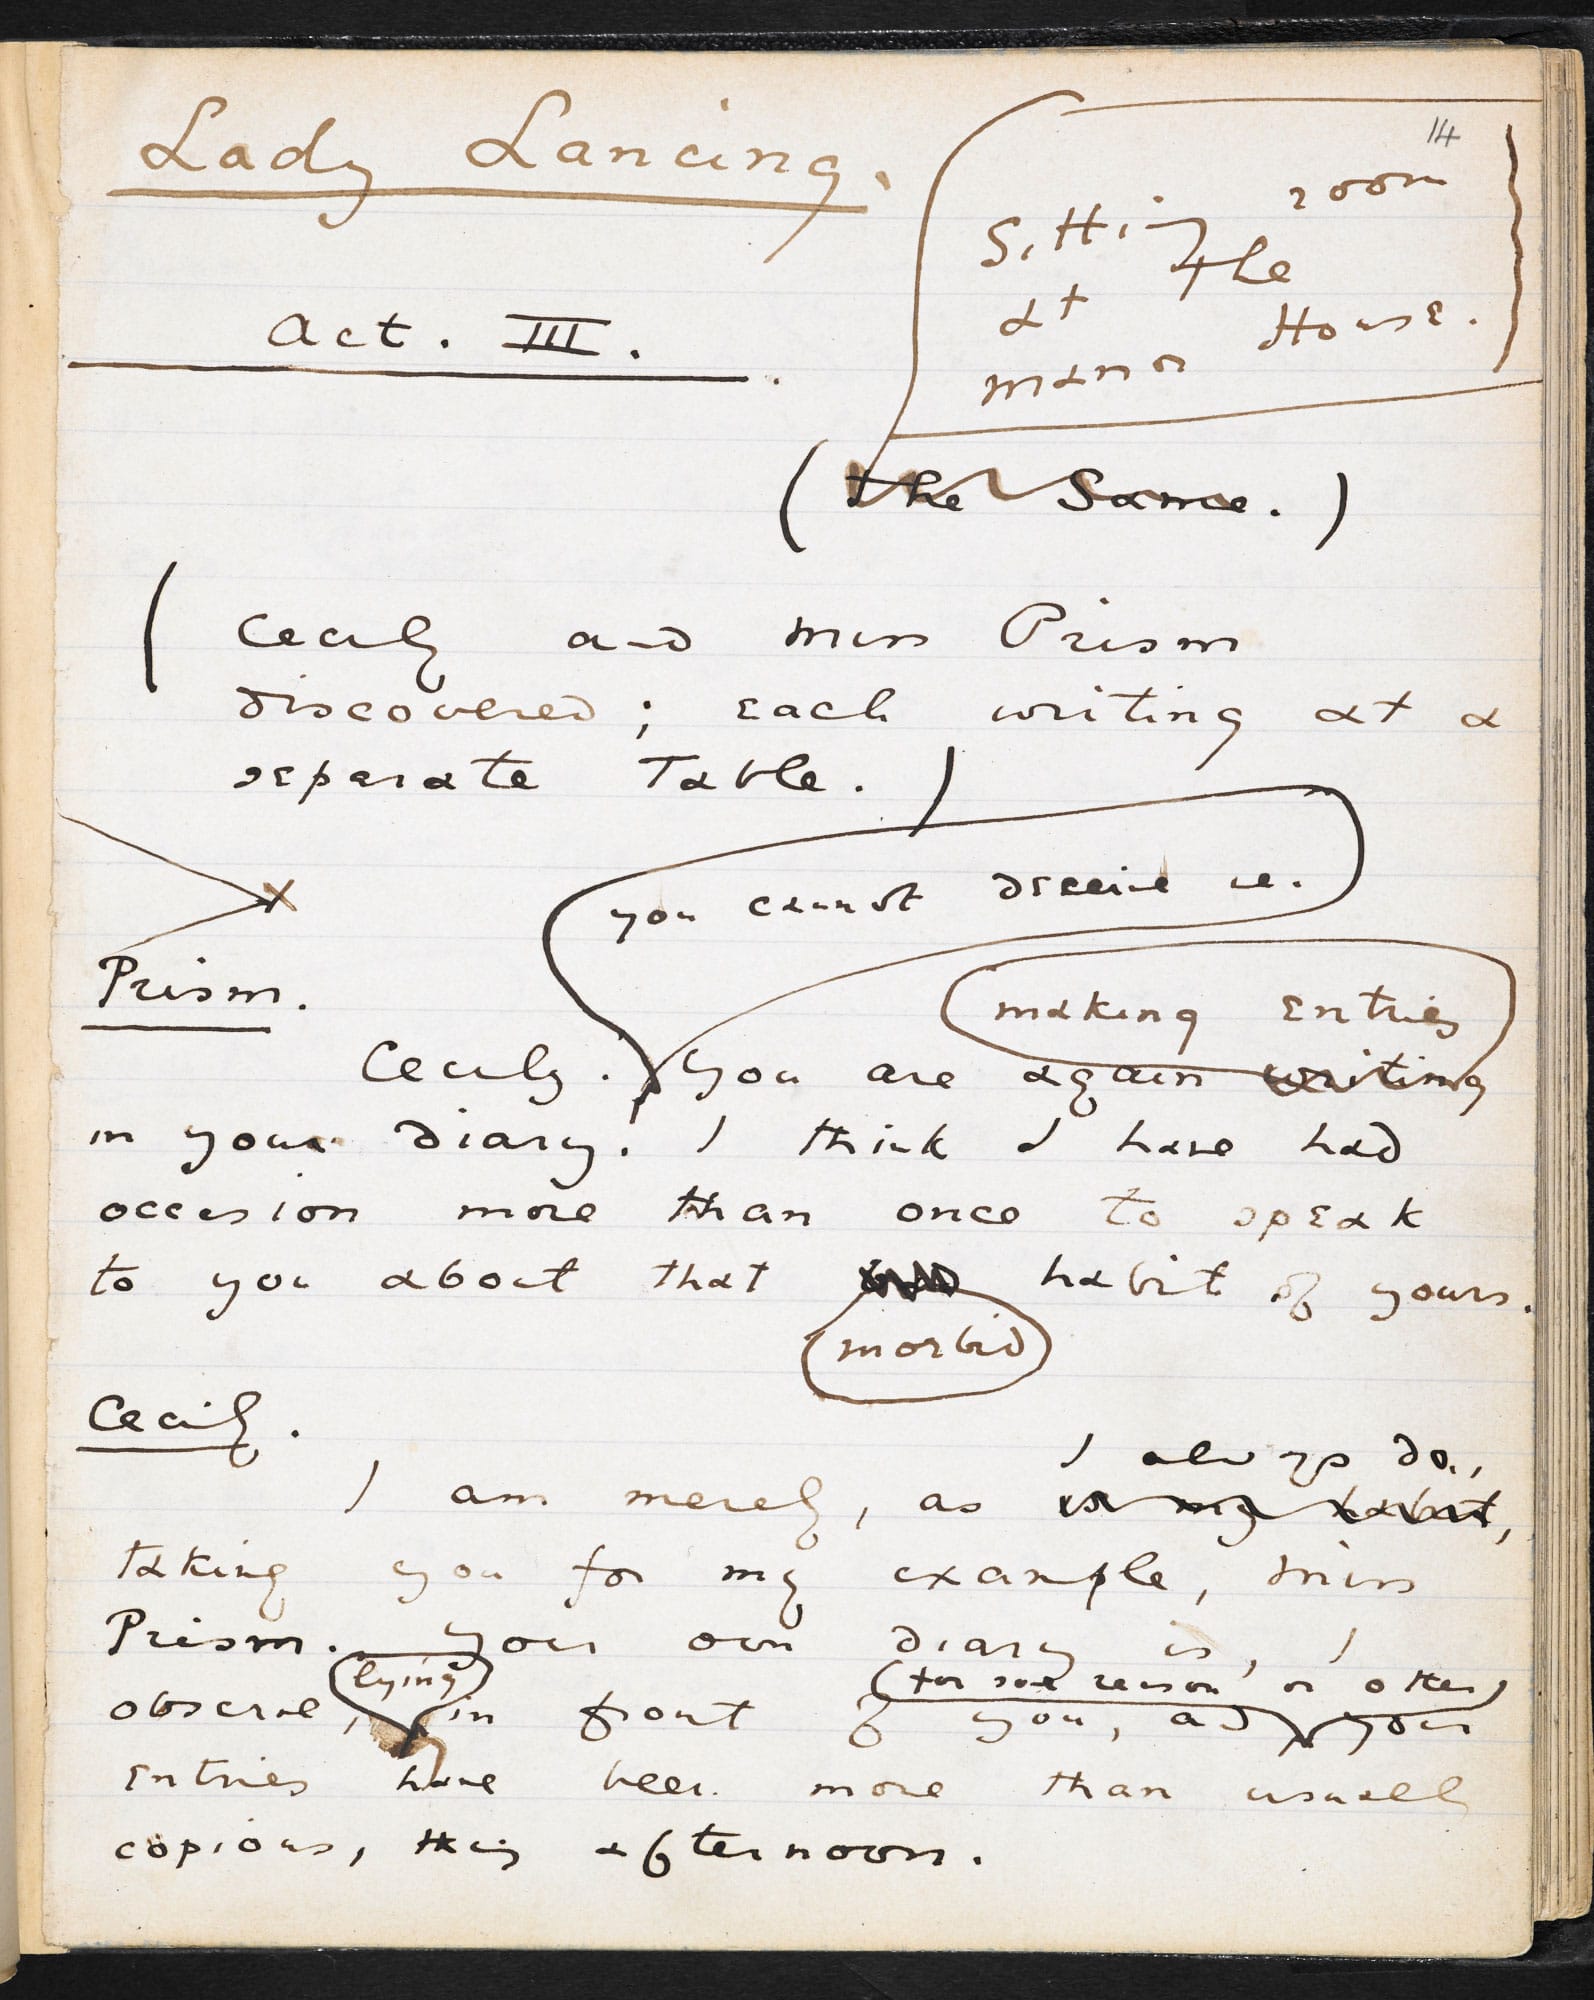 Lady Lancing.
14
Sitting room
at the
Manor House.
Act. III.
(the Same.)
(Cecily and Miss Prism
discovered; each writing at a
separate Table.)
you cannot deceive me.
Prism.
making entries
Cecily. You are again writing
in your diary. I think I have had
occasion more than once to speak
to you about that bad habit of yours.
morbid
Cecily.
I always do,
I am merely, as is my habit,
taking you for my example, Miss
Prism. Your own diary is, I
lying for some reason or other
observe, in front of you, and your
entries have been more than usually
copious, this afternoon.